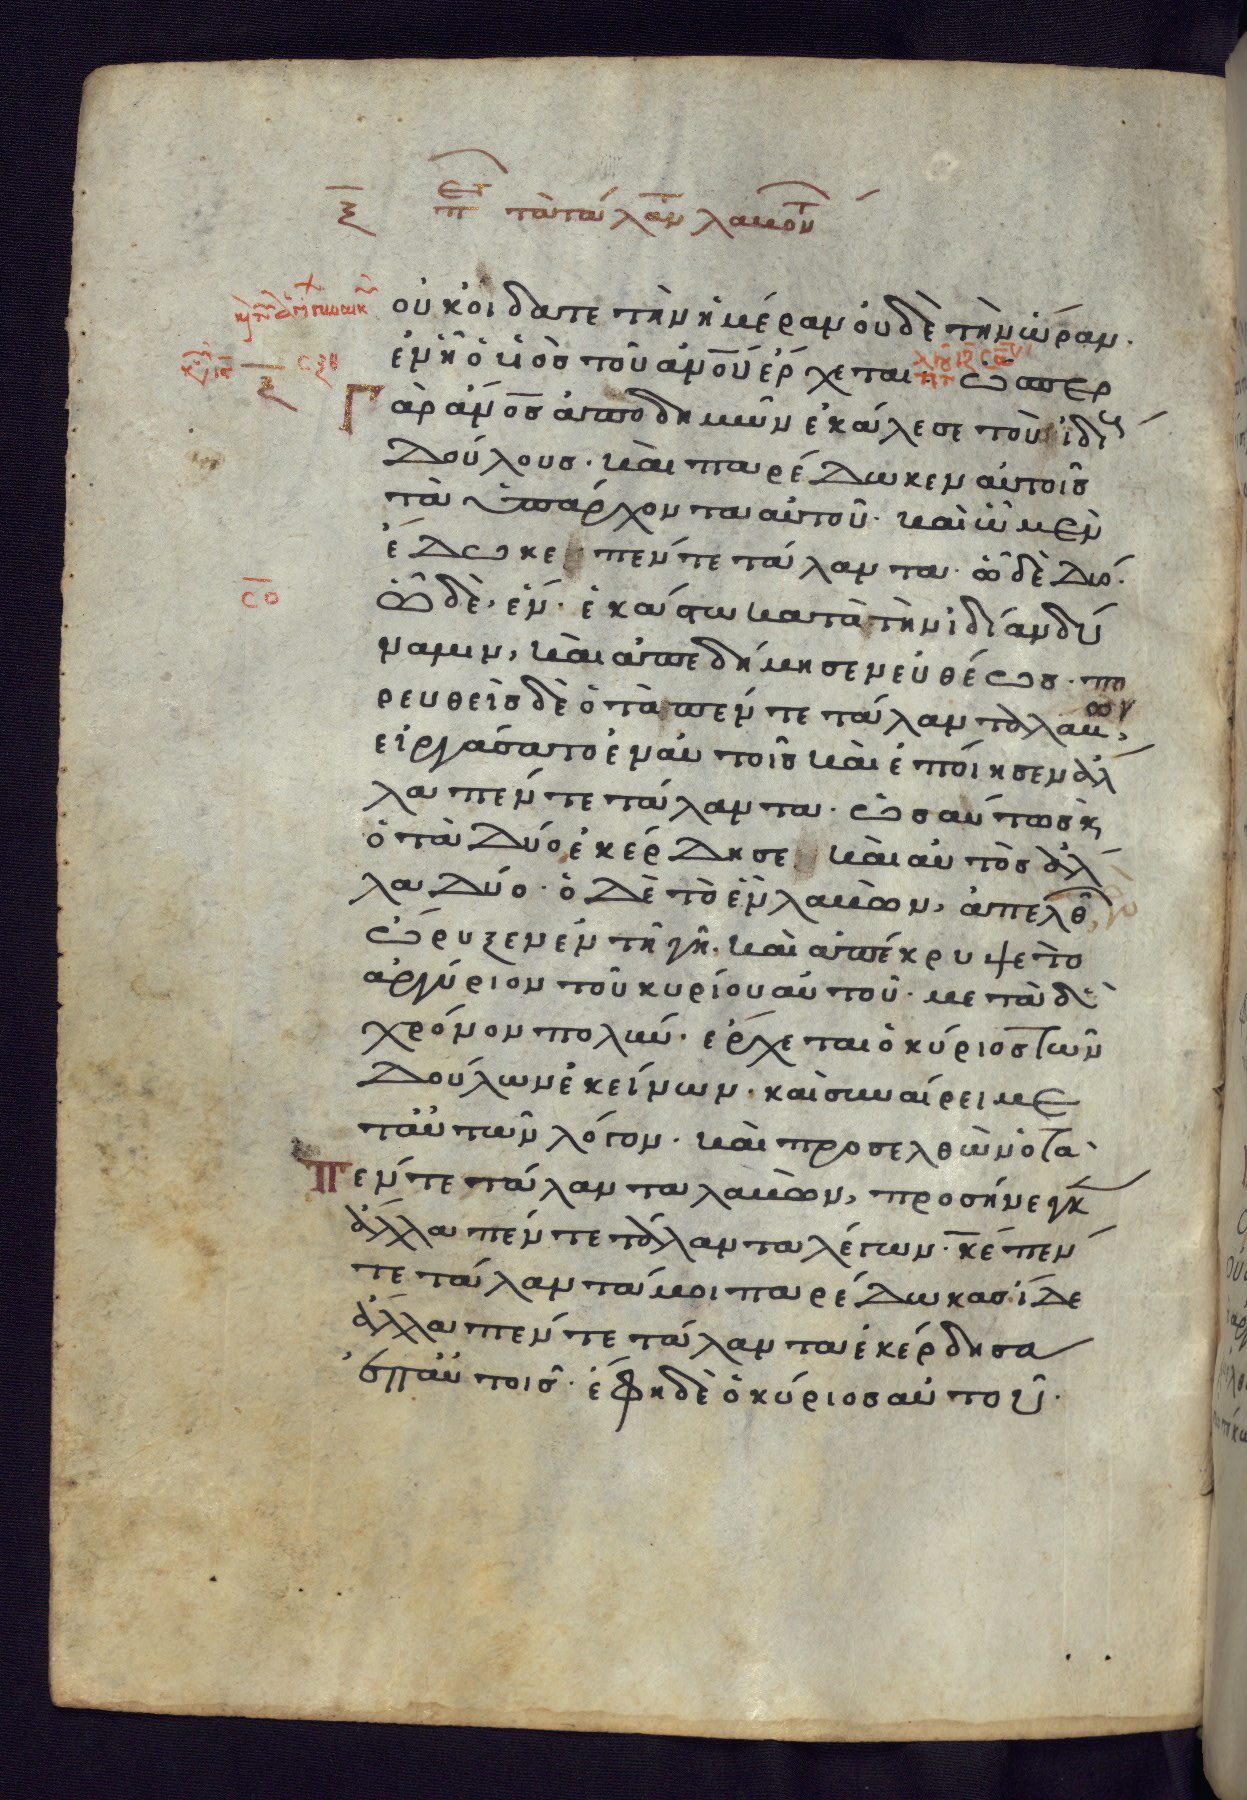 ξ π τὰ τάλαν λαβόντ
οὐκ οἴδατε τὴν ἡμέραν οὐδὲ τὴν ὥραν·
ἐν ᾗ ὁ υἱὸσ τοῦ ἀνου ἔρχεται· ὥσπερ
Γὰρ ἄνοσ ἀποδημῶν ἐκάλεσε τοὺ ἰδι
δούλουσ· καὶ παρέδωκεν αὐτοῖσ
τὰ ὑπάρχοντα αὐτοῦ· καὶ ὧ μὲν
ἔδωκε πέντε τάλαντα· ὧ δὲ δύο·
σο
ὧ δὲ, ἕν· ἑκάστω κατὰ τὴν ἰδίαν δύ
ναμιν, καὶ ἀπεδήμησεν εὐθέωσ· πο
ρευθεὶσ δὲ ὁ τὰ πέντε τάλαντα λαβων,
εἰργάσατο ἐν αὐτοῖσ καὶ ἐποίησεν ἀλ
λα πέντε τάλαντα· ὡσαύτωσ κ
ὁ τὰ δύο ἐκέρδησε καὶ αὐτὸσ ἀλ
λα δύο· ὁ δὲ τὸ ἓν λαβὼν, ἀπελθ
ὤρυξεν ἐν τῆ γῆ· καὶ ἀπέκρυψε τὸ
ἀργύριον τοῦ κυρίου αὐτοῦ· μετὰ δὲ
χρόνον πολὺν· ἔρχεται ὁ κύριοσ τῶν
δούλων ἐκείνων· καὶ συναίρει με
τ αὐτῶν λόγον· καὶ προσελθὼν ὁ τὰ
Πέντε τάλαντα λαβὼν, προσήνεγκ
ἄλλα πέντε τάλαντα λέγων· κέ πέν
τε τάλαντά μοι παρέδωκασ ἴδε
ἄλλα πέντε τάλαντα ἐκέρδησα
ἐπ αὐτοῖσ· ἔφη δὲ ὁ κύριοσ αὐτοῦ·